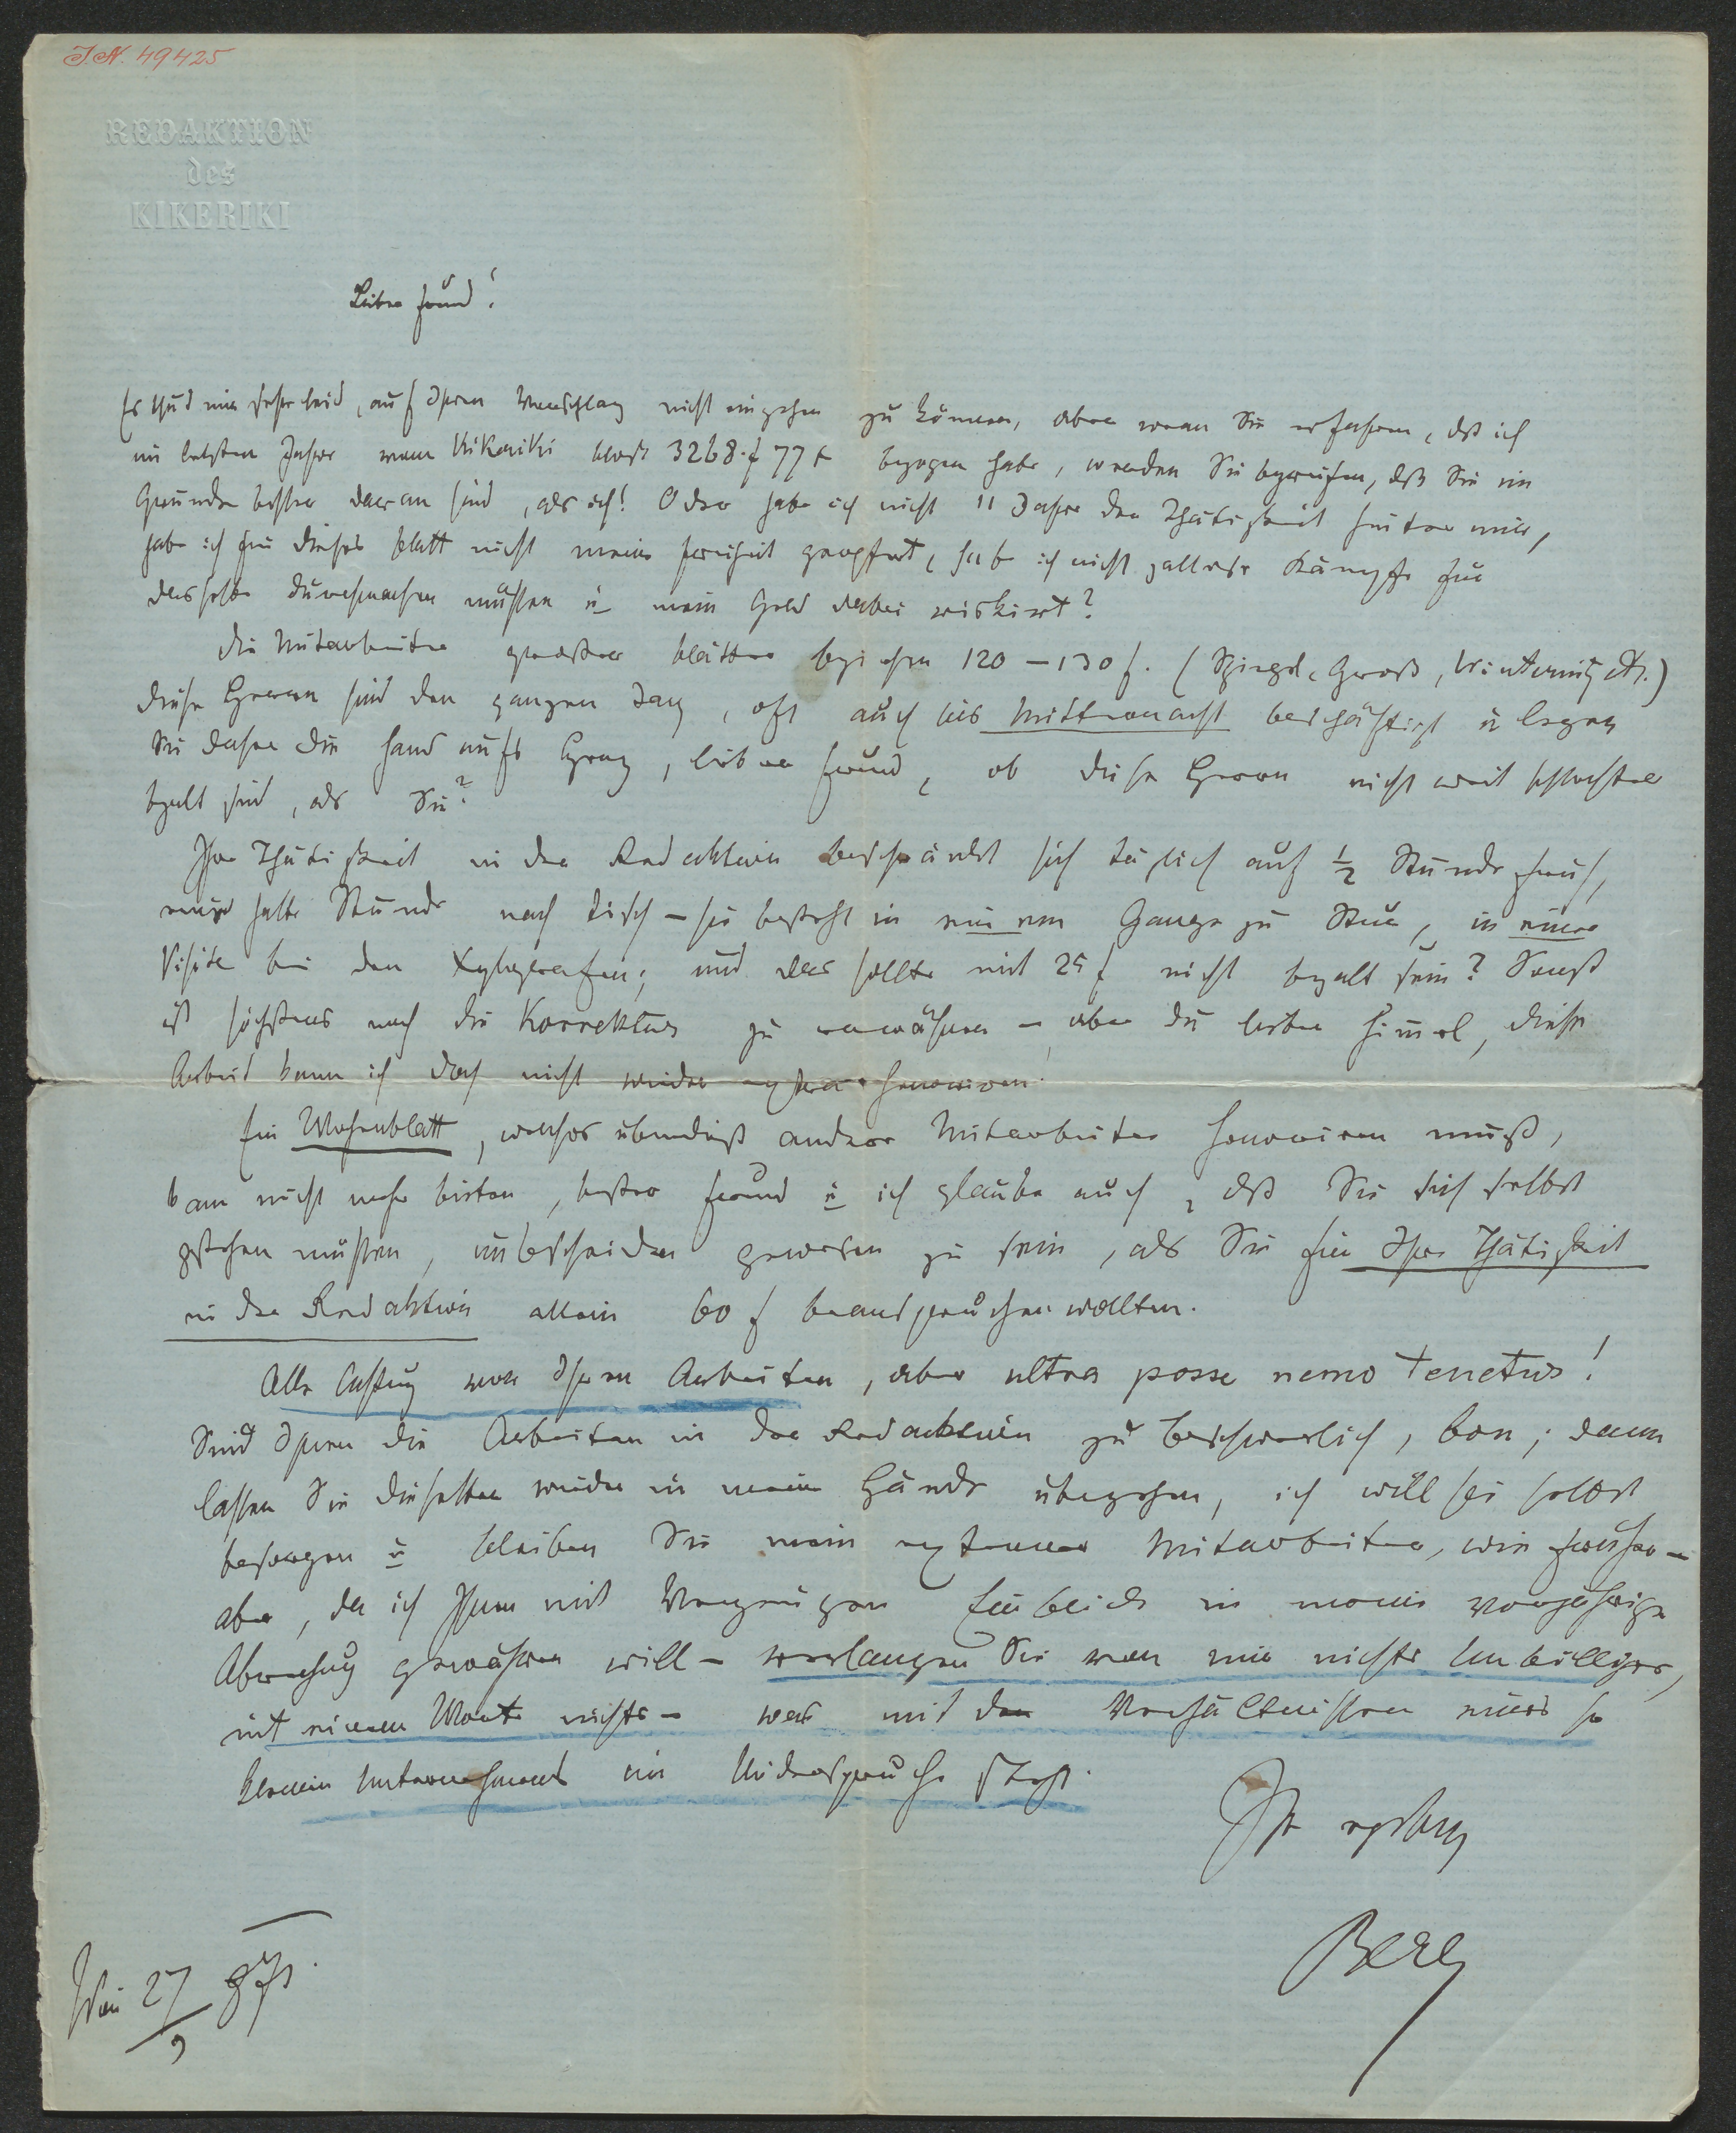 I.N. 49425
REDAKTION
des
KIKERIKI
Lieber Freund!
Es thut mir sehr leid, auf Ihren Vorschlag nicht eingehen zu können, aber wenn Sie erfahren, dß ich
im letzten Jahre vom Kikeriki bloß 3268 f 77 x bezogen habe, werden Sie begreifen, dß Sie im
Grunde besser daran sind, als ich! Oder habe ich nicht 11 Jahre der Thätigkeit hinter mir,
habe ich für dieses Blatt nicht meine Freiheit geopfert, habe ich nicht Kämpfe für
dasselbe durchmachen müssen u mein Geld dabei riskirt?
Die Mitarbeiter großer Blätter beziehen 120 – 130 f. (Spiegl, Groß, Winternitz etc.)
Diese Herren sind den ganzen Tag, oft auch bis Mitternacht beschäftigt u legen
Sie daher die Hand aufs Herz, lieber Freund, ob diese Herren nicht weit schlechter
bezalt sind, als Sie?
Ihre Thätigkeit in der Redaktion beschränkt sich täglich auf ½ Stunde früh,
eine halbe Stunde nach Tisch – sie besteht in einem Gange zu, in einer
Visite bei den Xylografen; und das sollte mit 25 f nicht bezalt sein? Sonst
ist höchstens noch die Korrektur zu erwähnen – aber du lieber Himel, diese
Arbeit kann ich doch nicht wieder extra honoriren.
Ein Wochenblatt, welches überdieß andere Mitarbeiter honoriren muß,
kann nicht mehr bieten, bester Freund u ich glaube auch, dß Sie sich selbst
gestehen müssen, unbescheiden gewesen zu sein, als Sie für Ihre Thätigkeit
in der Redaktion allein 60 f beanspruchen wollten.
Alle Achtung vor Ihren Arbeiten, aber ultra posse nemo tenetur!
Sind Ihnen die Arbeiten in der Redaktion zu beschwerlich, bon; dann
lassen Sie dieselben wieder in meine Hände übergehen, ich will sie selbst
besorgen u bleiben Sie mein externer Mitarbeiter, wie früher –
aber, da ich Ihnen mit Vergnügen Einblick in meine vorjährige
Abrechnung gewähren will – verlangen Sie von mir nichts Unbilliges,
mit einem Worte nichts – was mit den Verhältnissen eines so
kleinen Unternehmens im Widerspruche steht.
Ihr ergebener
Berg
Wien 27/9 871.